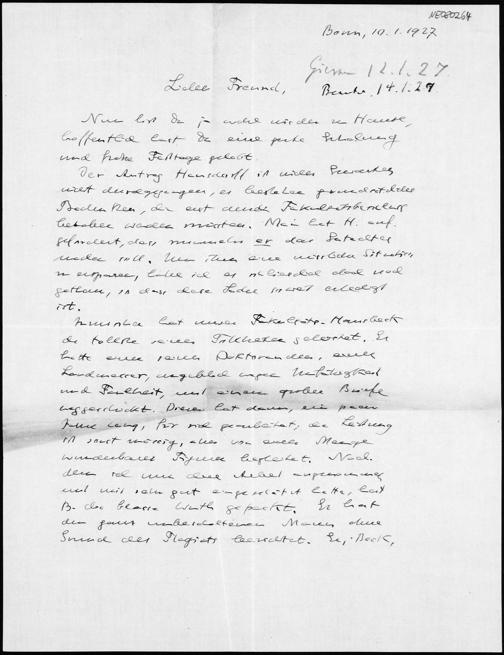 NE080264
Bonn, 10.1.1927
Giessen 12.1.27.
14.1.27
Lieber Freund,
Nun bist Du ja wohl wieder zu Hause,
hoffentlich hast Du eine gute Erholung
und frohe Festtage gehabt.
Der Antrag Hausdorff ist wider Erwarten
nicht durchgegangen, es bestehen grundsätzliche
Bedenken, die erst durch Fakultätsberatung
behoben werden müssten. Man hat H. auf-
gefordert, dass nunmehr er das
werden soll. Um ihm eine missliche Situation
zu ersparen, habe ich es schliesslich doch noch
gethan, so dass diese Sache soweit erledigt
ist.
Inzwischen hat unser Fakultäts-
die tollste seiner geleistet. Er
hatte einen seiner Doktoranden, einen
Landmesser, angeblich wegen Unfähigkeit
und Faulheit, mit einem groben Briefe
weggeschickt. Dieser hat dann, ein paar
Jahre lang, für sich gearbeitet, die Leistung
ist sonst mässig, aber von einer Menge
wunderbarer Figuren begleitet. Nach-
dem ich nun diese Arbeit angenommen
und mit sehr gut eingeschätzt hatte, hat
B. die blasse Wuth gepackt. Er hat
den ganz unbescholtenen Mann ohne
Grund des Plagiats bezichtet. Er, Beck,